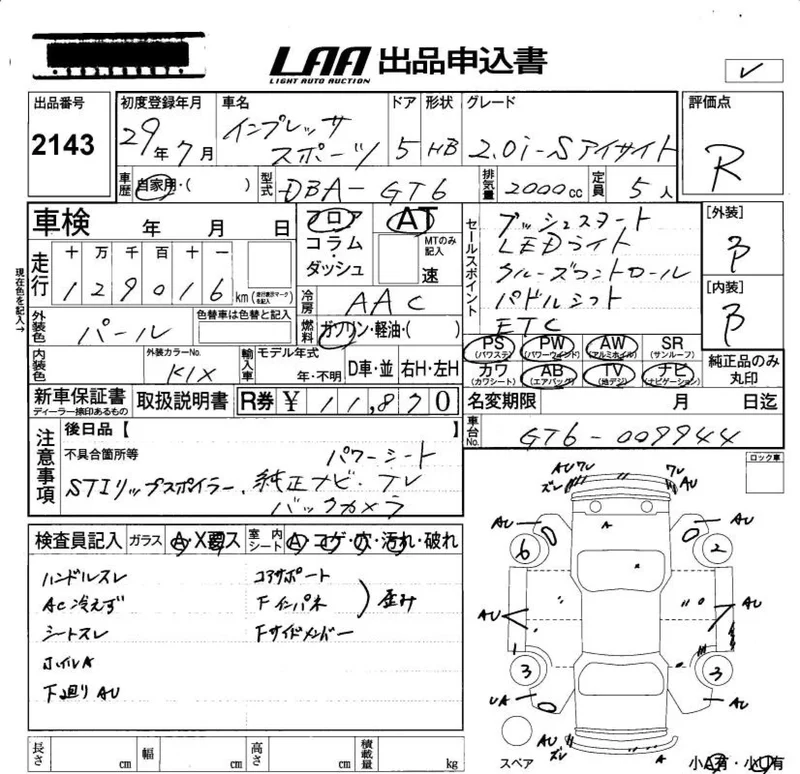 LAA 出品申込書
LIGHT AUTO AUCTION
出品番号 初度登録年月 車名 ドア 形状 グレード 評価点
2143 29年7月 インプレッサ スポーツ 5 HB 2.0i-Sアイサイト R
車歴 自家用・( ) 型式 DBA-GT6 排気量 2000cc 定員 5人
車検 年 月 日 フロア AT
コラム・ダッシュ MTのみ記入 速
セールスポイント
プッシュスタート
LEDライト
クルーズコントロール
パドルシフト
ETC
[外装]
B
[内装]
B
現在色を記入→
走行 十 万 千 百 十 一
129016km (走行表示マークを記入)
冷房 AAC
外装色 パール 色替車は色替と記入
燃料 ガソリン・軽油・( )
PS (パワステ) PW (パワーウインド) AW (アルミホイル) SR (サンルーフ)
カワ (カワシート) AB (エアバック) TV (地デジ) ナビ (ナビゲーション)
純正品のみ丸印
内装色 外装カラーNo. K1X 輸入車 モデル年式 年・不明 D車・並 右H・左H
新車保証書 ディーラー捺印あるもの 取扱説明書 R券 ¥ 11,870
名変期限 月 日迄
車台No. GT6-009944
注意事項 後日品【 】
不具合箇所等 パワーシート
STIリップスポイラー、純正ナビ・TV
バックカメラ
ロック車
検査員記入 ガラス A・X要・ス 室内シート A・コゲ・穴・汚れ・破れ
ハンドルスレ コアサポート
AC冷えず Fインパネ 歪み
シートスレ Fサイドメンバー
ホイルA
下廻りAU
AU ワレ ワレ
ズレ AU
AU A AU
6 2
AU AU
3 3
UA AU
AU
ズレ A
スペア 小A有・小X有
長さ cm 幅 cm 高さ cm 積載量 kg